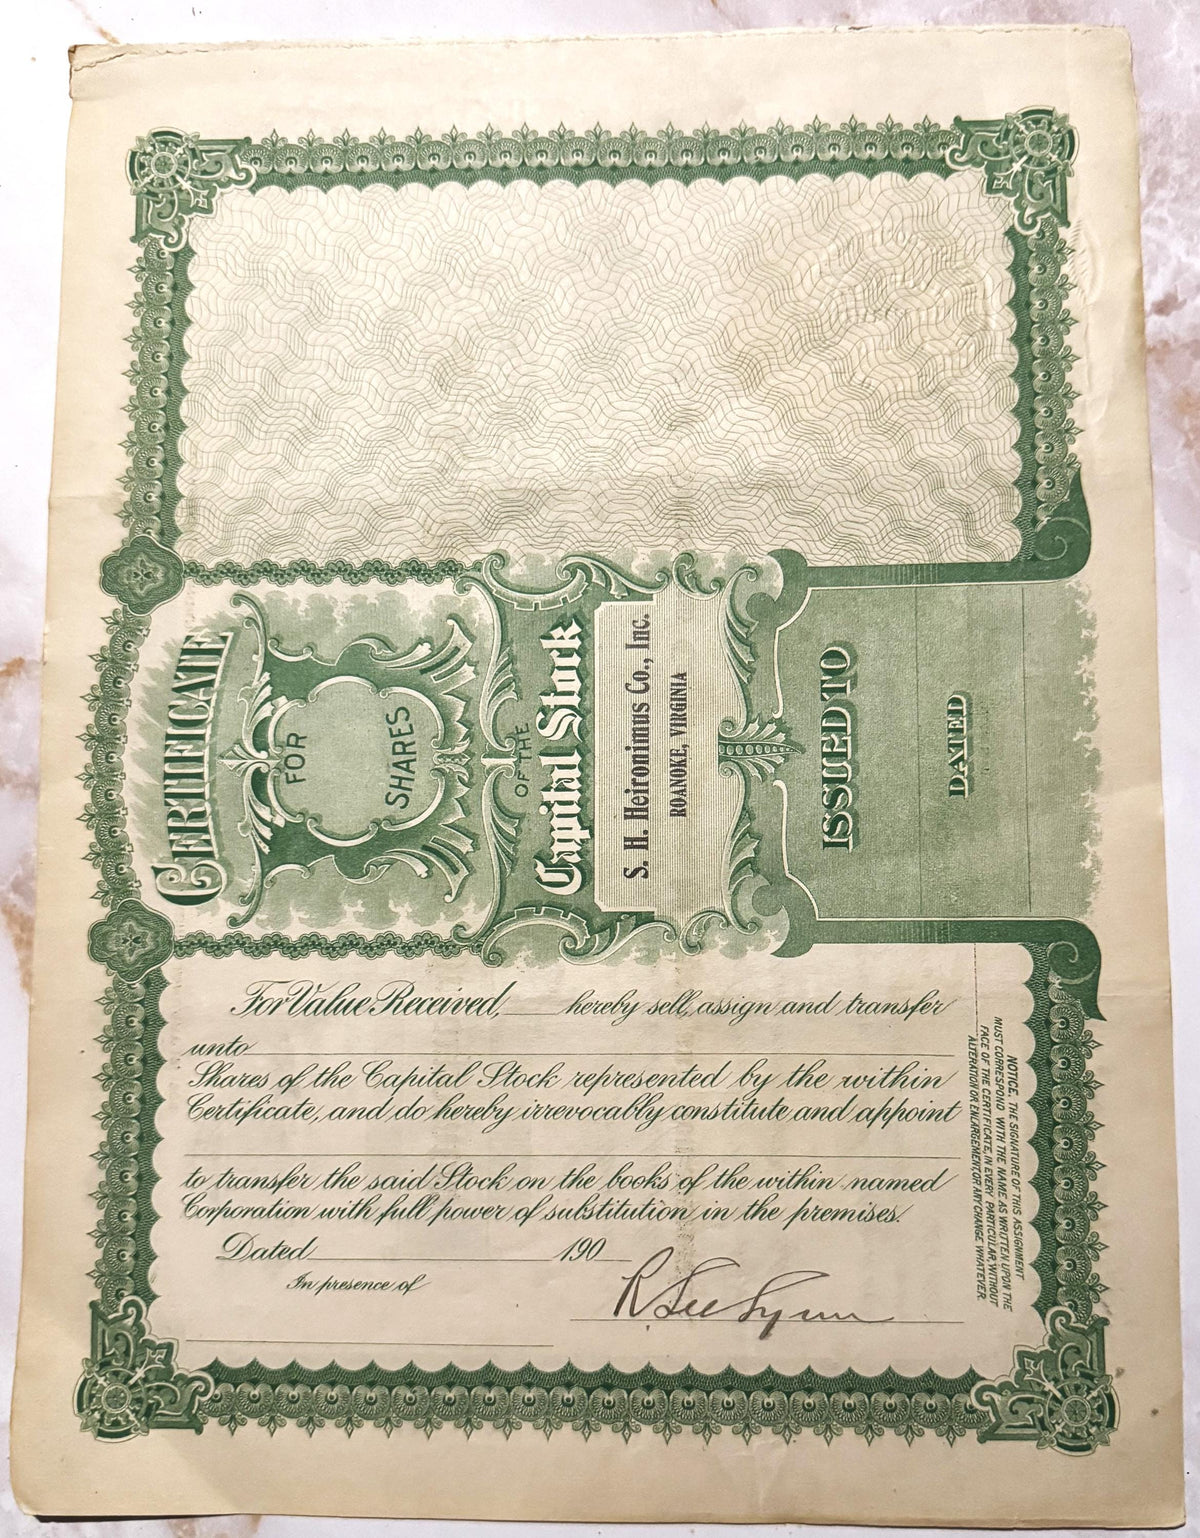 CERTIFICATE
FOR
SHARES
OF THE
Capital Stock
S. H. Heironimus Co., Inc.
ROANOKE, VIRGINIA
ISSUED TO
DATED
For Value Received, hereby sell, assign and transfer
unto
Shares of the Capital Stock represented by the within
Certificate, and do hereby irrevocably constitute and appoint
to transfer the said Stock on the books of the within named
Corporation with full power of substitution in the premises.
Dated 190
In presence of
R. Lee Lynn
NOTICE. THE SIGNATURE OF THIS ASSIGNMENT
MUST CORRESPOND WITH THE NAME AS WRITTEN UPON THE
FACE OF THE CERTIFICATE, IN EVERY PARTICULAR, WITHOUT
ALTERATION OR ENLARGEMENT, OR ANY CHANGE WHATEVER.